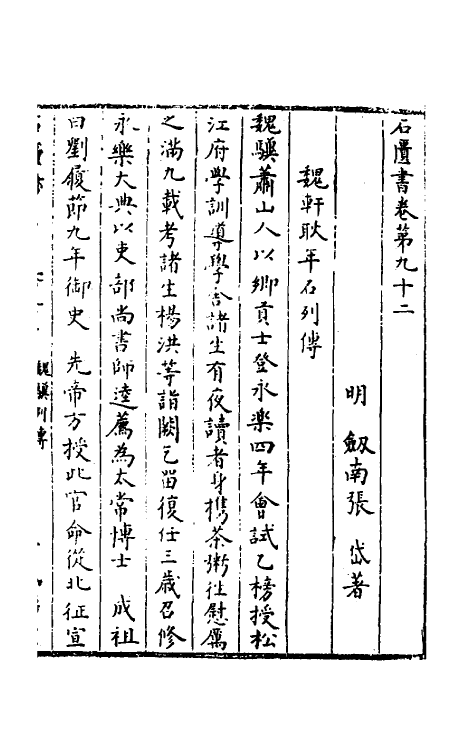 石匱書卷第九十二
明 劔南張 岱著
魏軒耿年石列傳
魏驥蕭山人以鄉貢士登永樂四年會試乙榜授松
江府學訓導學舍諸生有夜讀者身携茶粥往慰厲
之滿九載考諸生楊洪等詣闕乞留復任三歲召修
永樂大典以吏部尚書師逵薦為太常博士 成祖
曰劉履節九年御史 先帝方授此官命從北征宣
魏驥列傳